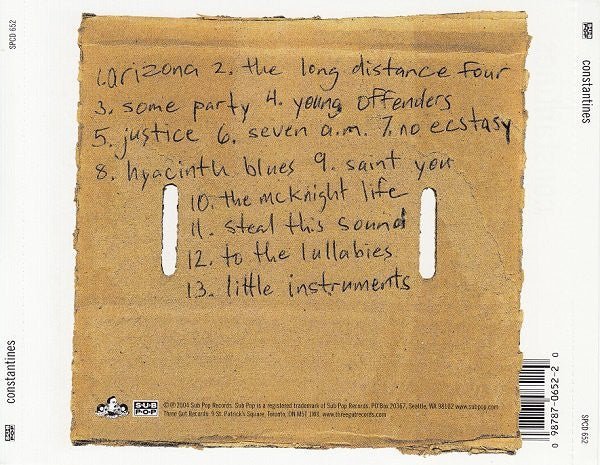 SPCD 652
constantines
1. arizona 2. the long distance four
3. some party 4. young offenders
5. justice 6. seven a.m. 7. no ecstasy
8. hyacinth blues 9. saint you
10. the mcknight life
11. steal this sound
12. to the lullabies
13. little instruments
SUB
POP
©℗ 2004 Sub Pop Records. Sub Pop is a registered trademark of Sub Pop Records. PO Box 20367, Seattle, WA 98102 www.subpop.com
Three Gut Records: 9 St. Patrick's Square, Toronto, ON M5T 1W8. www.threegutrecords.com
constantines
SUB
POP
constantines
0 98787-0652-2 0
SPCD 652